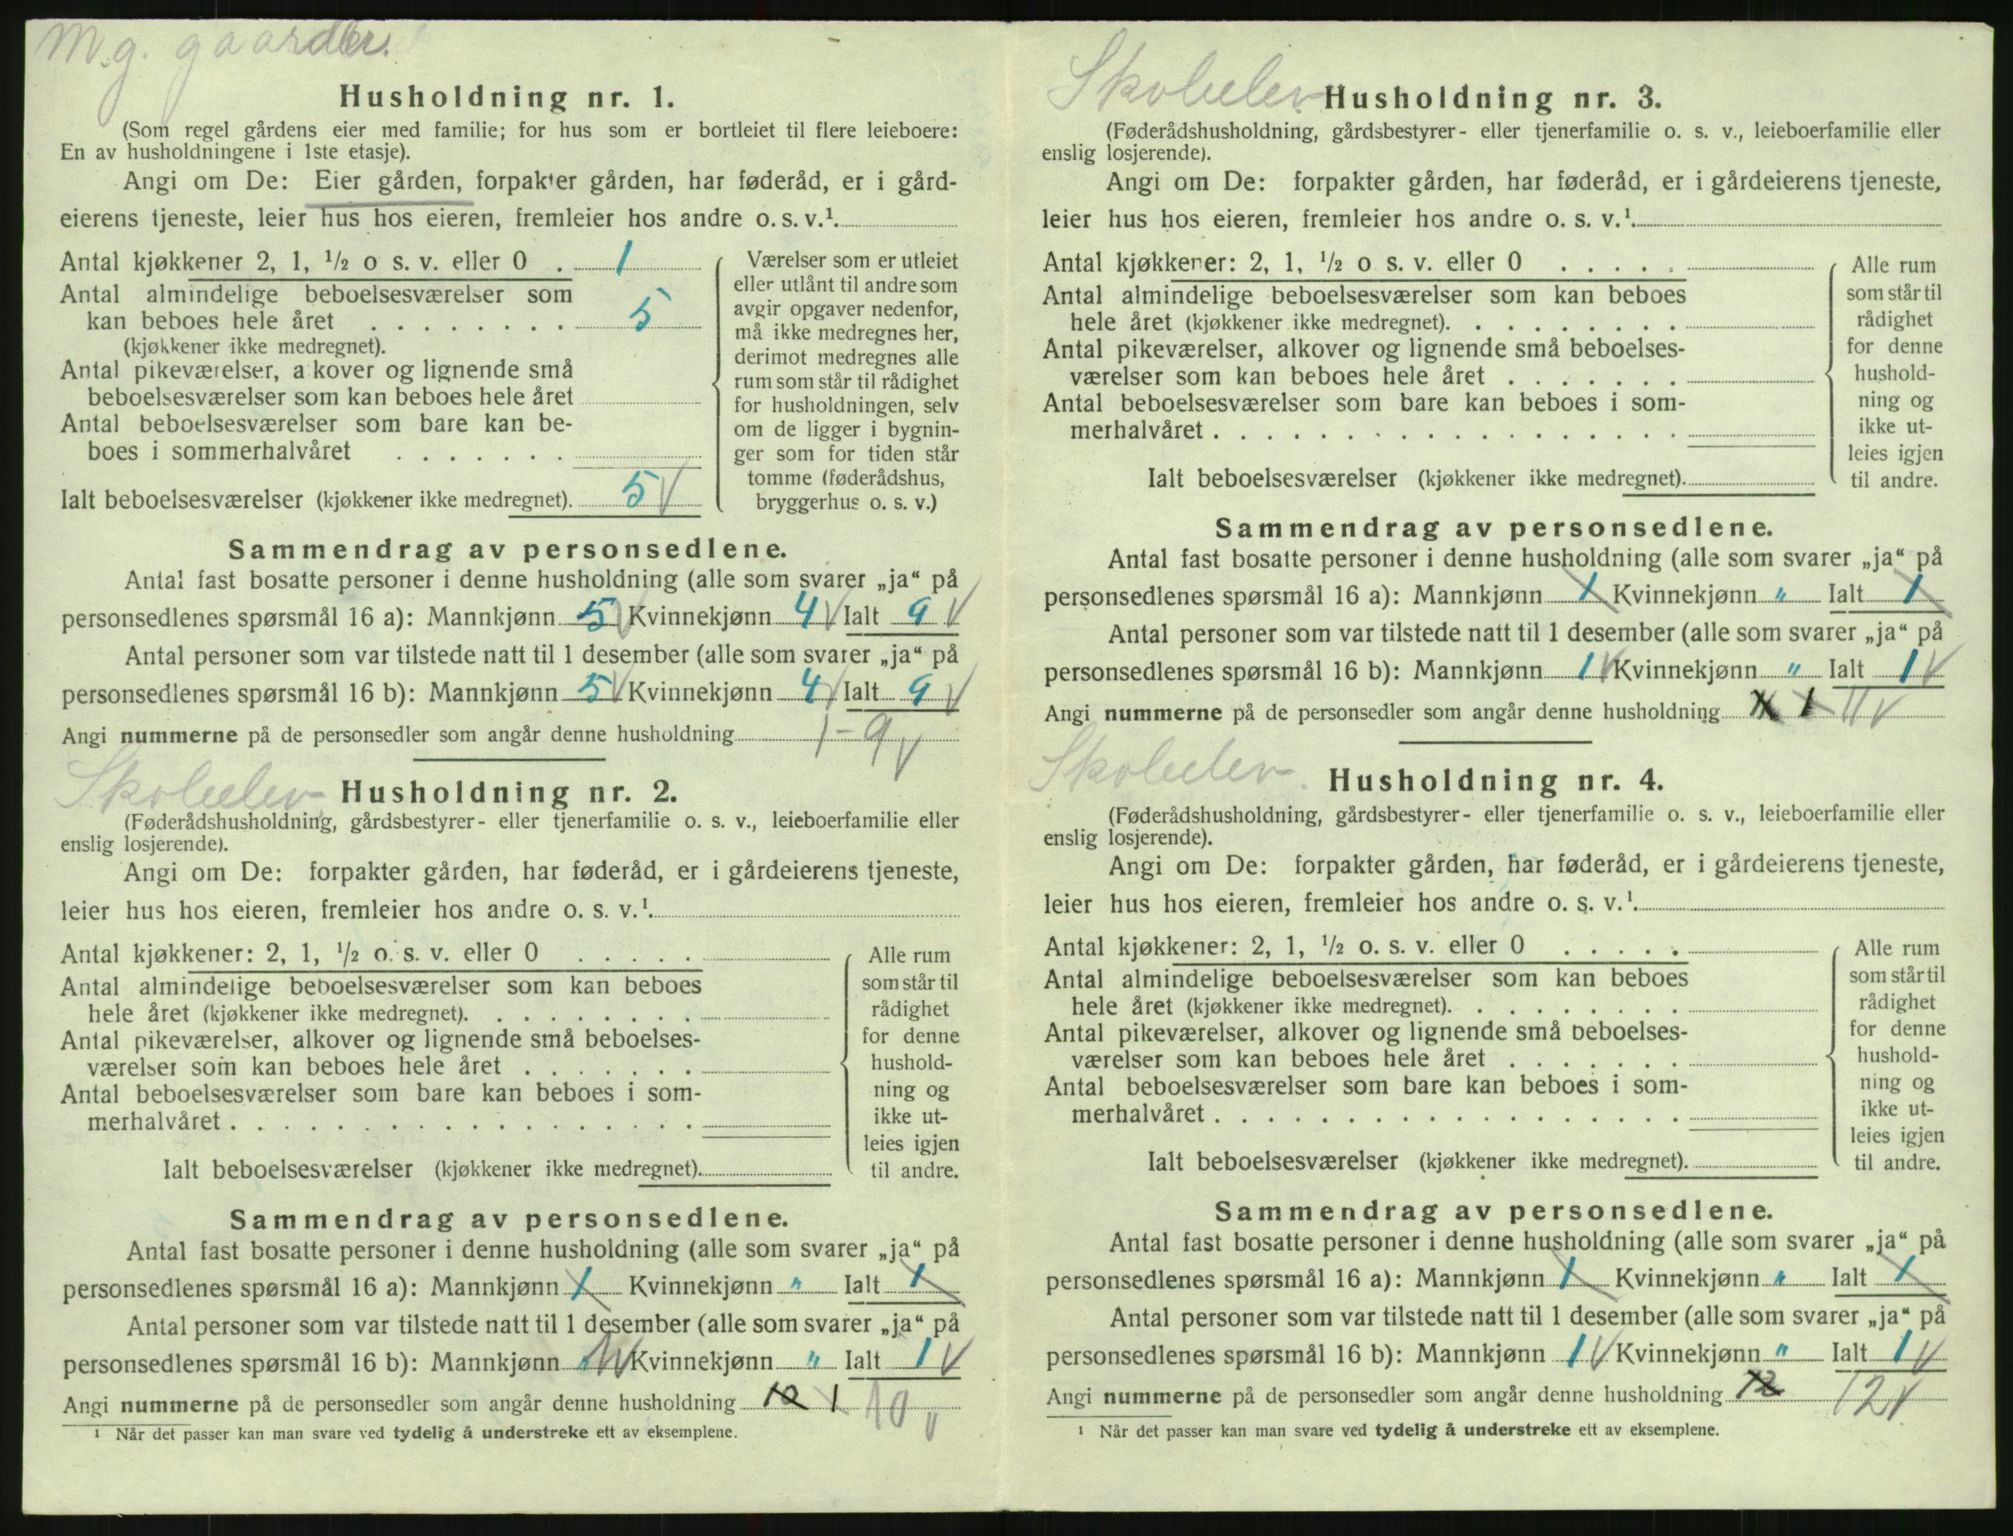 M.g. gaardbr.
Husholdning nr. 1.
(Som regel gårdens eier med familie; for hus som er bortleiet til flere leieboere:
En av husholdningene i 1ste etasje).
Angi om De: Eier gården, forpakter gården, har føderåd, er i gård-
eierens tjeneste, leier hus hos eieren, fremleier hos andre o. s. v.¹.
Antal kjøkkener 2, 1, ½ o s. v. eller 0 . 1
Antal almindelige beboelsesværelser som
kan beboes hele året . . . . . . . . 5
(kjøkkener ikke medregnet).
Antal pikeværelser, alkover og lignende små
beboelsesværelser som kan beboes hele året
Antal beboelsesværelser som bare kan be-
boes i sommerhalvåret . . . . . . .
Ialt beboelsesværelser (kjøkkener ikke medregnet). 5 V
Værelser som er utleiet
eller utlånt til andre som
avgir opgaver nedenfor,
må ikke medregnes her,
derimot medregnes alle
rum som står til rådighet
for husholdningen, selv
om de ligger i bygnin-
ger som for tiden står
tomme (føderådshus,
bryggerhus o. s. v.)
Sammendrag av personsedlene.
Antal fast bosatte personer i denne husholdning (alle som svarer „ja“ på
personsedlenes spørsmål 16 a): Mannkjønn 5 V Kvinnekjønn 4 V Ialt 9 V
Antal personer som var tilstede natt til 1 desember (alle som svarer „ja“ på
personsedlenes spørsmål 16 b): Mannkjønn 5 V Kvinnekjønn 4 V Ialt 9 V
Angi nummerne på de personsedler som angår denne husholdning 1 - 9 V
Skoleelev
Husholdning nr. 2.
(Føderådshusholdning, gårdsbestyrer- eller tjenerfamilie o. s. v., leieboerfamilie eller
enslig losjerende).
Angi om De: forpakter gården, har føderåd, er i gårdeierens tjeneste,
leier hus hos eieren, fremleier hos andre o. s. v.¹.
Antal kjøkkener: 2, 1, ½ o. s. v. eller 0 . . . . .
Antal almindelige beboelsesværelser som kan beboes
hele året (kjøkkener ikke medregnet). . . . . . . . .
Antal pikeværelser, alkover og lignende små beboelses-
værelser som kan beboes hele året . . . . . . .
Antal beboelsesværelser som bare kan beboes i som-
merhalvåret . . . . . . . . . . . . . . . . . .
Ialt beboelsesværelser (kjøkkener ikke medregnet).
Alle rum
som står til
rådighet
for denne
hushold-
ning og
ikke ut-
leies igjen
til andre.
Sammendrag av personsedlene.
Antal fast bosatte personer i denne husholdning (alle som svarer „ja“ på
personsedlenes spørsmål 16 a): Mannkjønn 1 Kvinnekjønn " Ialt 1
Antal personer som var tilstede natt til 1 desember (alle som svarer „ja“ på
personsedlenes spørsmål 16 b): Mannkjønn 1 V Kvinnekjønn " Ialt 1 V
Angi nummerne på de personsedler som angår denne husholdning 12 1 10 V
¹ Når det passer kan man svare ved tydelig å understreke ett av eksemplene.
Skoleelev
Husholdning nr. 3.
(Føderådshusholdning, gårdsbestyrer- eller tjenerfamilie o. s. v., leieboerfamilie eller
enslig losjerende).
Angi om De: forpakter gården, har føderåd, er i gårdeierens tjeneste,
leier hus hos eieren, fremleier hos andre o. s. v.¹.
Antal kjøkkener: 2, 1, ½ o s. v. eller 0 . . . . .
Antal almindelige beboelsesværelser som kan beboes
hele året (kjøkkener ikke medregnet). . . . . . . . .
Antal pikeværelser, alkover og lignende små beboelses-
værelser som kan beboes hele året . . . . . . .
Antal beboelsesværelser som bare kan beboes i som-
merhalvåret . . . . . . . . . . . . . . . . . .
Ialt beboelsesværelser (kjøkkener ikke medregnet).
Alle rum
som står til
rådighet
for denne
hushold-
ning og
ikke ut-
leies igjen
til andre.
Sammendrag av personsedlene.
Antal fast bosatte personer i denne husholdning (alle som svarer „ja“ på
personsedlenes spørsmål 16 a): Mannkjønn 1 Kvinnekjønn " Ialt 1
Antal personer som var tilstede natt til 1 desember (alle som svarer „ja“ på
personsedlenes spørsmål 16 b): Mannkjønn 1 V Kvinnekjønn " Ialt 1 V
Angi nummerne på de personsedler som angår denne husholdning 1 11 V
Skoleelev
Husholdning nr. 4.
(Føderådshusholdning, gårdsbestyrer- eller tjenerfamilie o. s. v., leieboerfamilie eller
enslig losjerende).
Angi om De: forpakter gården, har føderåd, er i gårdeierens tjeneste,
leier hus hos eieren, fremleier hos andre o. s. v.¹.
Antal kjøkkener: 2, 1, ½ o. s. v. eller 0 . . . . .
Antal almindelige beboelsesværelser som kan beboes
hele året (kjøkkener ikke medregnet). . . . . . . . .
Antal pikeværelser, alkover og lignende små beboelses-
værelser som kan beboes hele året . . . . . . .
Antal beboelsesværelser som bare kan beboes i som-
merhalvåret . . . . . . . . . . . . . . . . . .
Ialt beboelsesværelser (kjøkkener ikke medregnet).
Alle rum
som står til
rådighet
for denne
hushold-
ning og
ikke ut-
leies igjen
til andre.
Sammendrag av personsedlene.
Antal fast bosatte personer i denne husholdning (alle som svarer „ja“ på
personsedlenes spørsmål 16 a): Mannkjønn 1 Kvinnekjønn " Ialt 1
Antal personer som var tilstede natt til 1 desember (alle som svarer „ja“ på
personsedlenes spørsmål 16 b): Mannkjønn 1 V Kvinnekjønn " Ialt 1 V
Angi nummerne på de personsedler som angår denne husholdning 12 12 V
¹ Når det passer kan man svare ved tydelig å understreke ett av eksemplene.